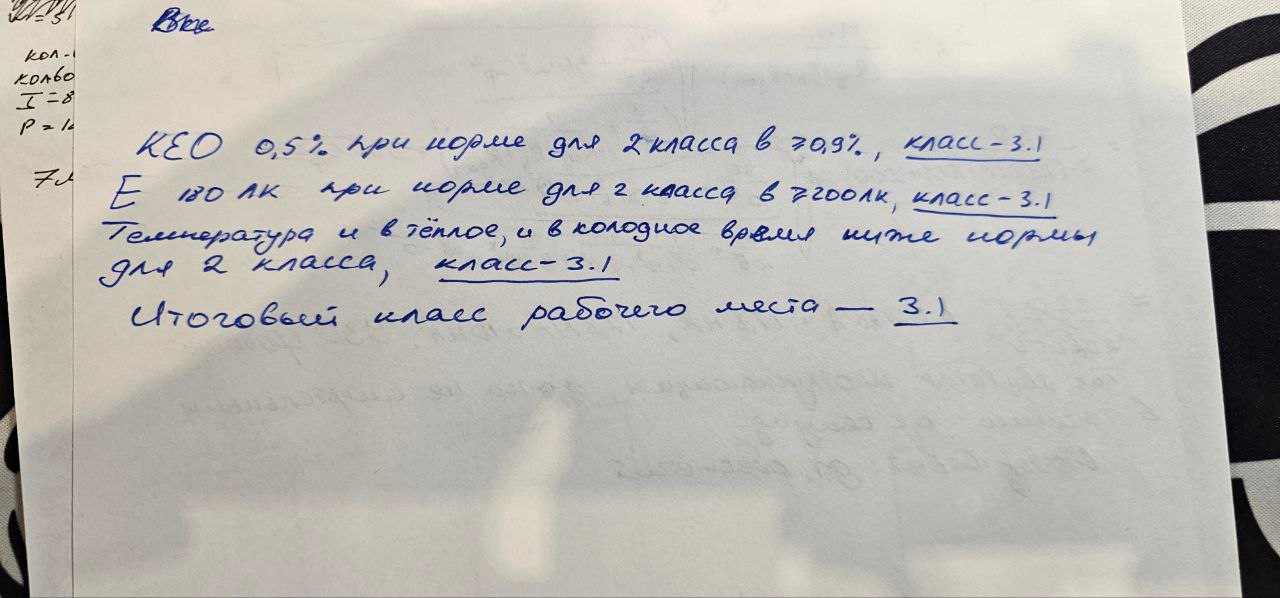 КЕО 0,5% при норме для 2 класса в ≥0,9%, класс-3.1
E 180 лк при норме для 2 класса в ≥200лк, класс-3.1
Температура и в тёплое, и в холодное время ниже нормы
для 2 класса, класс-3.1
Итоговый класс рабочего места — 3.1
кол-
колво
I=8
P=1